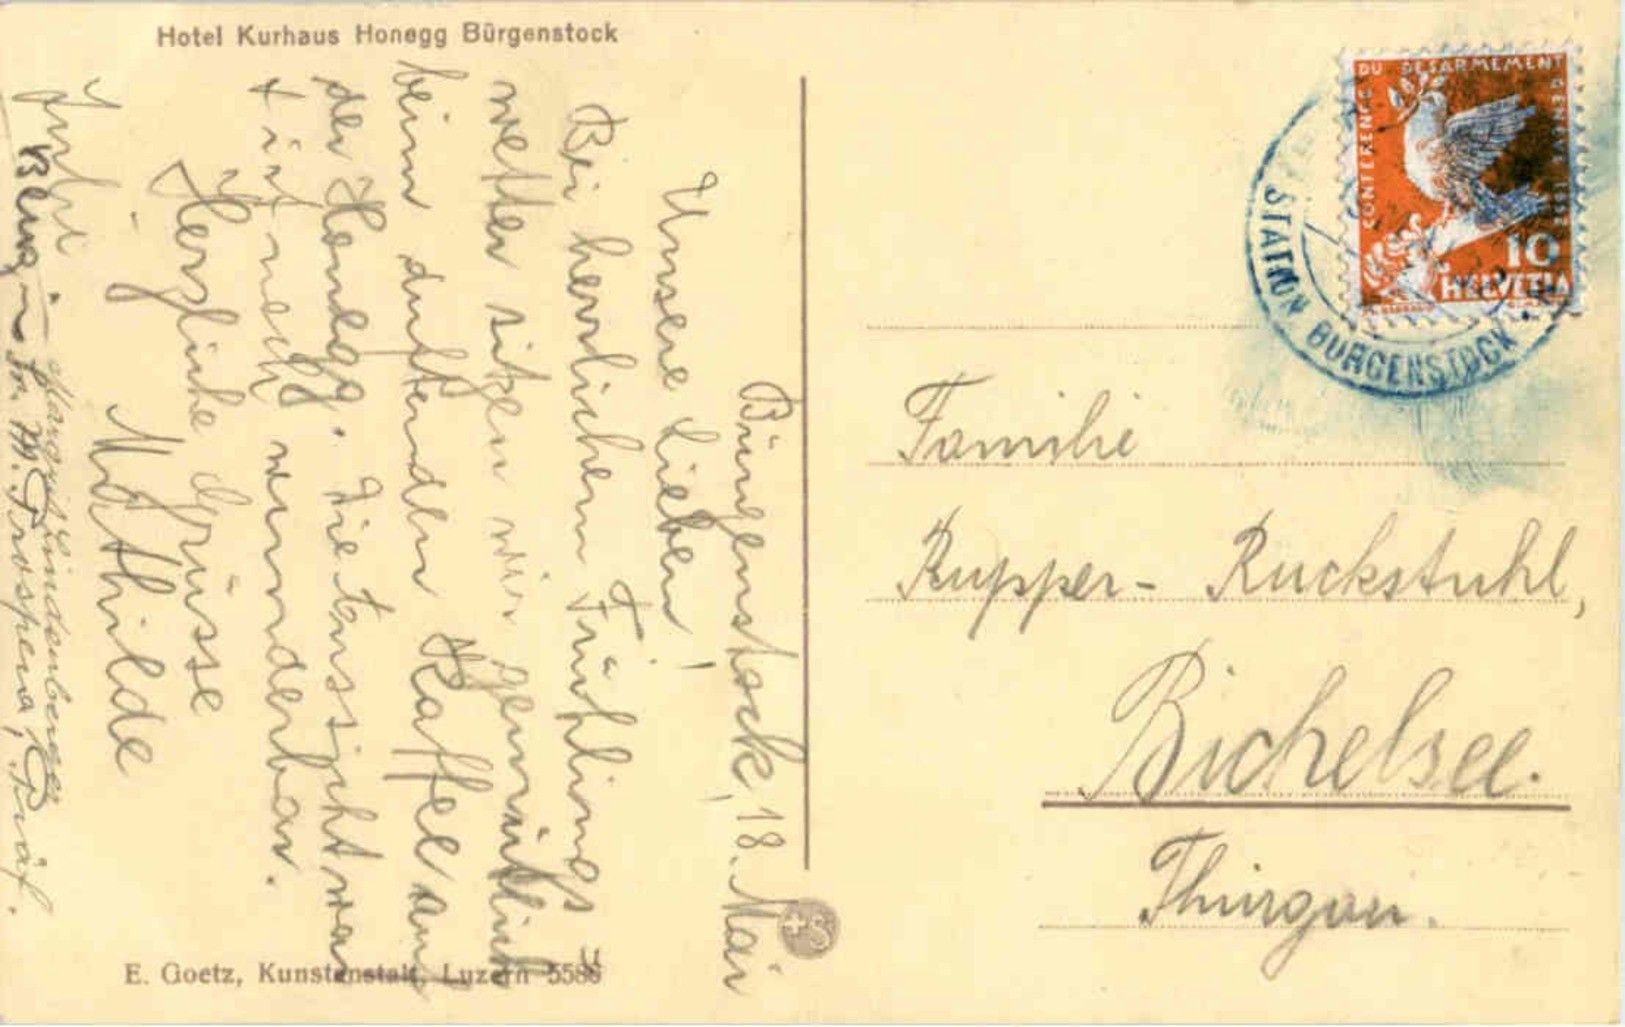 Hotel Kurhaus Honegg Bürgenstock
Bürgenstock, 18. Mai
Unsere Lieben!
Bei herrlichem Frühlings=
wetter sitzen wir gemütlich
beim duftenden Kaffee auf
der Honegg. Die Fernsicht war
wunderbar.
Herzliche Grüsse
Mathilde
Lindenberger
Sr. M. Prospera, Präf.
E. Goetz, Kunstanstalt, Luzern 5586
CONFERENCE DU DESARMEMENT GENEVE 1932
10
HELVETIA
STATION BÜRGENSTOCK
Familie
Rupper- Ruckstuhl,
Bichelsee.
Thurgau.